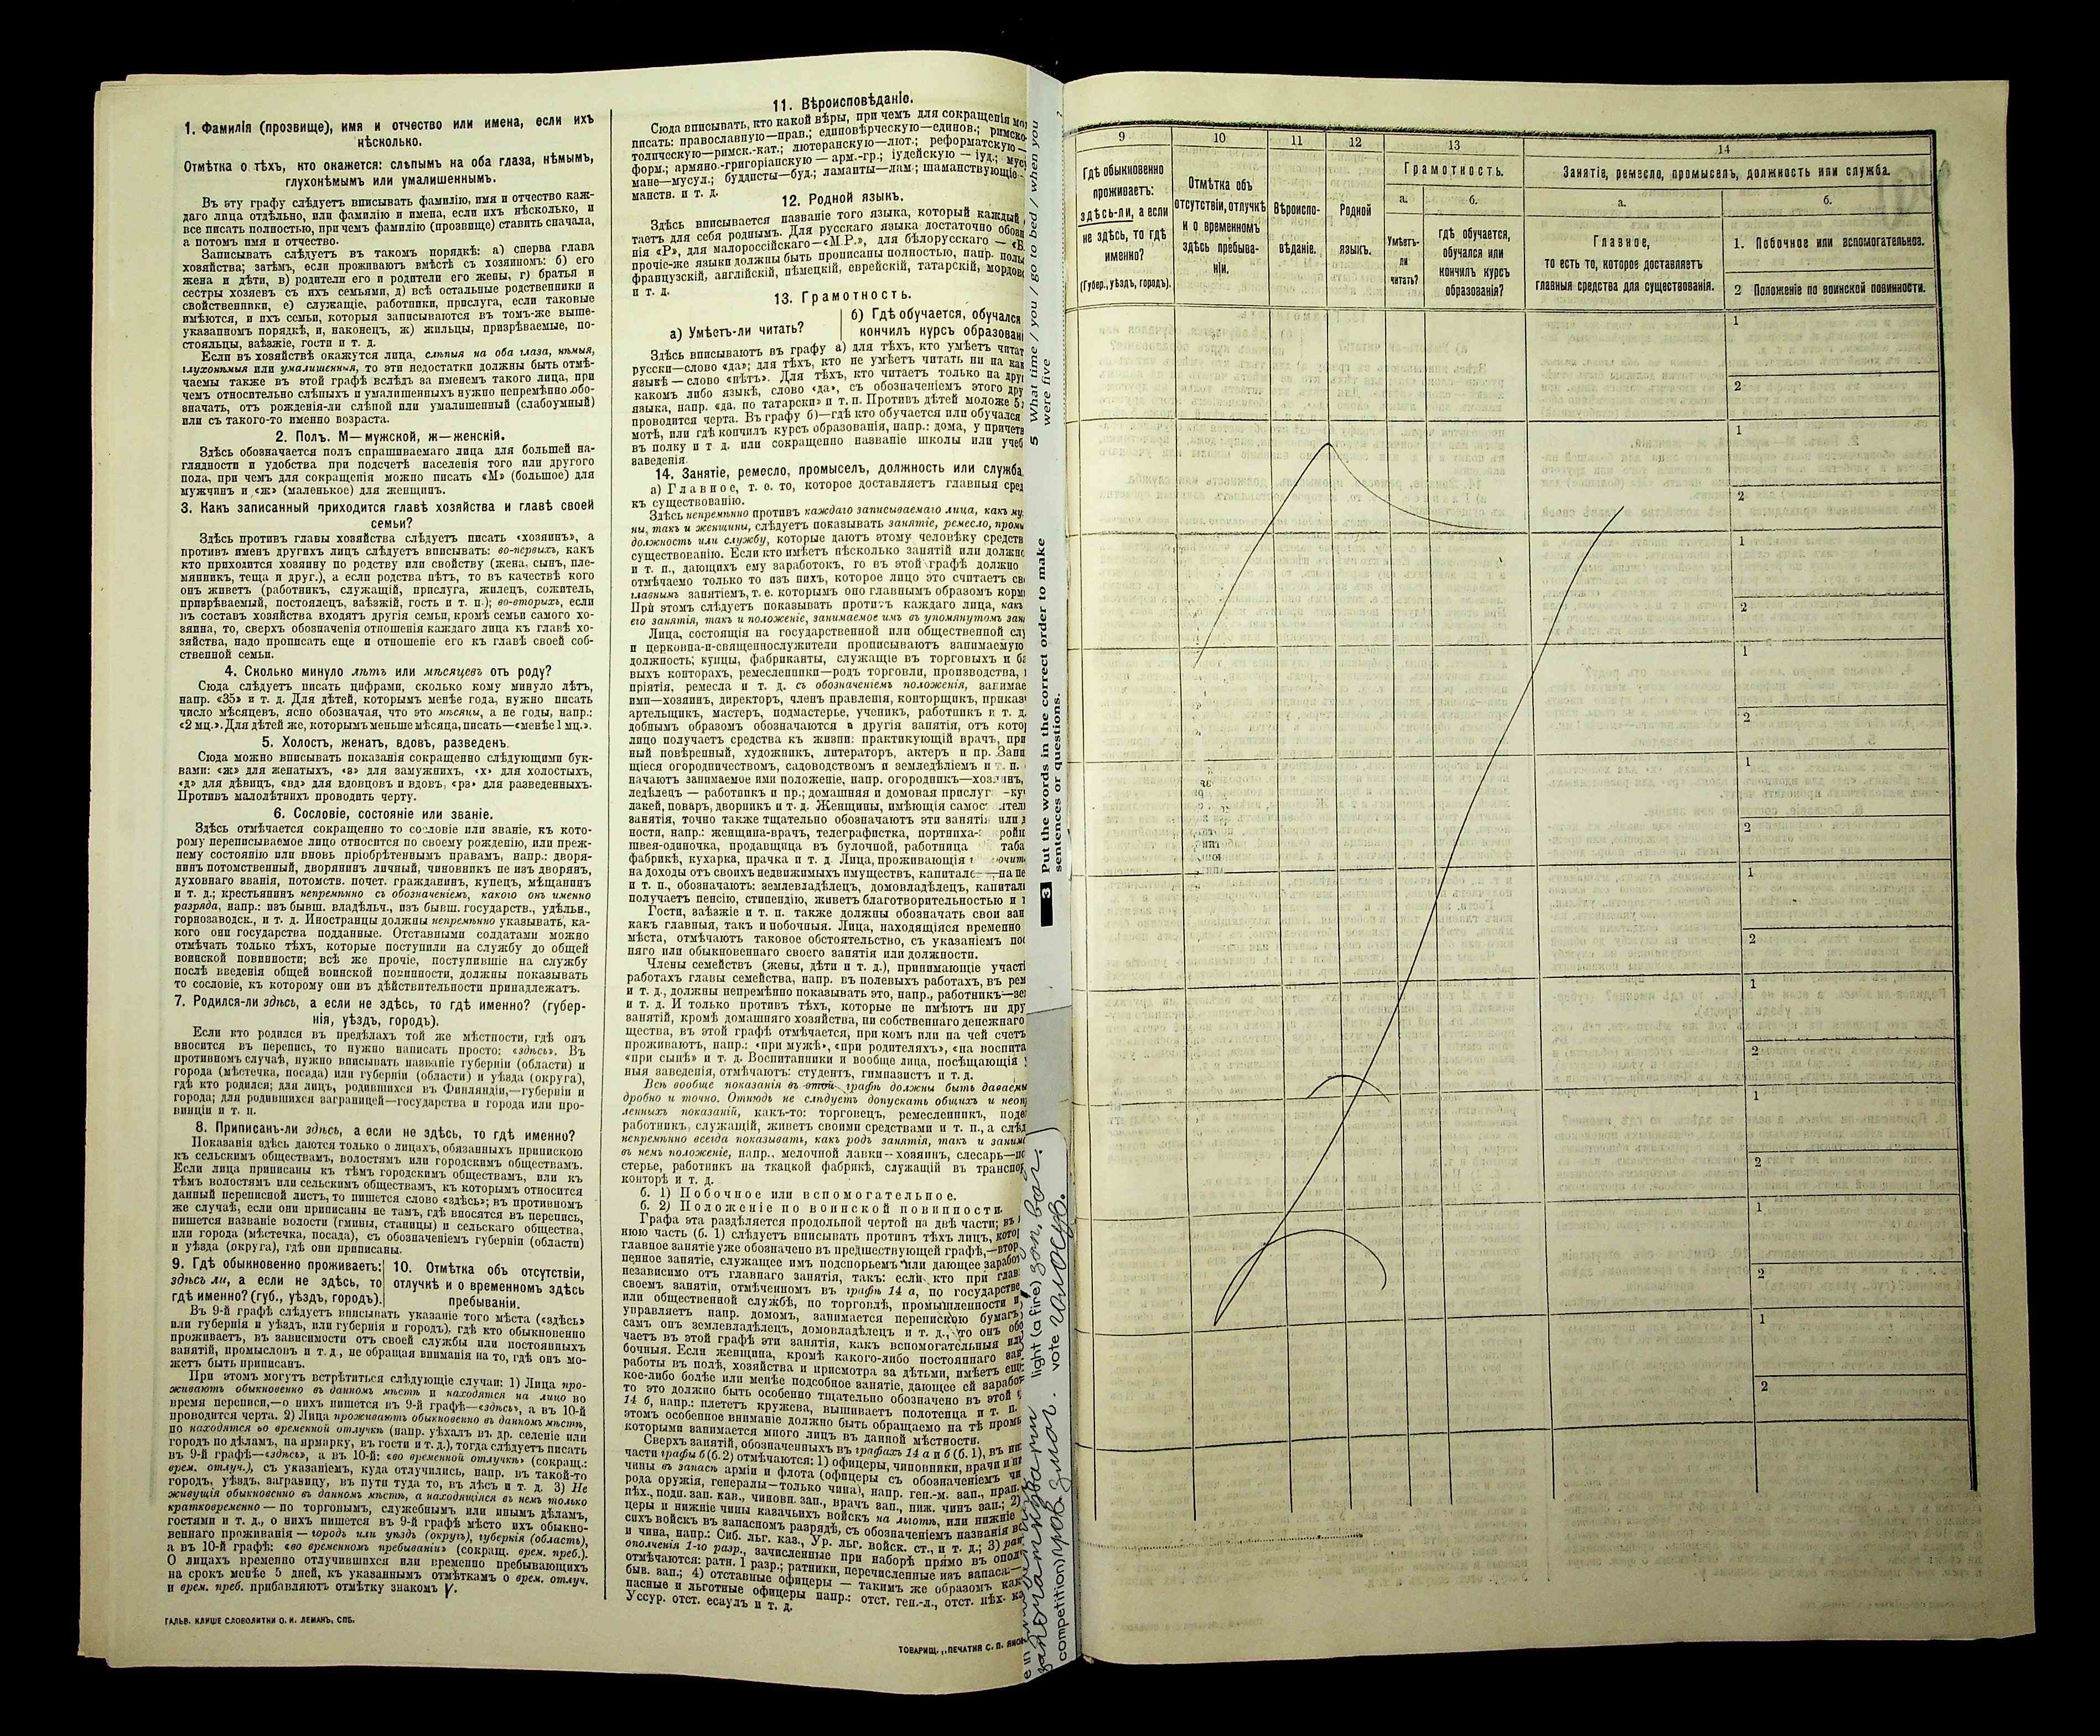 1. Фамилія (прозвище), имя и отчество или имена, если ихъ
нѣсколько.
Отмѣтка о тѣхъ, кто окажется: слѣпымъ на оба глаза, нѣмымъ,
глухонѣмымъ или умалишеннымъ.
Въ эту графу слѣдуетъ вписывать фамилію, имя и отчество каж-
даго лица отдѣльно, или фамилію и имена, если ихъ нѣсколько, и
все писать полностью, при чемъ фамилію (прозвище) ставить сначала,
а потомъ имя и отчество.
Записывать слѣдуетъ въ такомъ порядкѣ: а) сперва глава
хозяйства; затѣмъ, если проживаютъ вмѣстѣ съ хозяиномъ: б) его
жена и дѣти, в) родители его и родители его жены, г) братья и
сестры хозяевъ съ ихъ семьями, д) всѣ остальные родственники и
свойственники, е) служащіе, работники, прислуга, если таковые
имѣются, и ихъ семьи, которыя записываются въ томъ-же выше-
указанномъ порядкѣ, и, наконецъ, ж) жильцы, призрѣваемые, по-
стояльцы, заѣзжіе, гости и т. д.
Если въ хозяйствѣ окажутся лица, слѣпыя на оба глаза, нѣмыя,
глухонѣмыя или умалишенныя, то эти недостатки должны быть отмѣ-
чаемы также въ этой графѣ вслѣдъ за именемъ такого лица, при
чемъ относительно слѣпыхъ и умалишенныхъ нужно непремѣнно обо-
значать, отъ рожденія-ли слѣпой или умалишенный (слабоумный)
или съ такого-то именно возраста.
2. Полъ. М—мужской, ж—женскій.
Здѣсь обозначается полъ спрашиваемаго лица для большей на-
глядности и удобства при подсчетѣ населенія того или другого
пола, при чемъ для сокращенія можно писать «М» (большое) для
мужчинъ и «ж» (маленькое) для женщинъ.
3. Какъ записанный приходится главѣ хозяйства и главѣ своей
семьи?
Здѣсь противъ главы хозяйства слѣдуетъ писать «хозяинъ», а
противъ именъ другихъ лицъ слѣдуетъ вписывать: во-первыхъ, какъ
кто приходится хозяину по родству или свойству (жена, сынъ, пле-
мянникъ, теща и друг.), а если родства нѣтъ, то въ качествѣ кого
онъ живетъ (работникъ, служащій, прислуга, жилецъ, сожитель,
призрѣваемый, постоялецъ, заѣзжій, гость и т. п.); во-вторыхъ, если
въ составъ хозяйства входятъ другія семьи, кромѣ семьи самого хо-
зяина, то, сверхъ обозначенія отношенія каждаго лица къ главѣ хо-
зяйства, надо прописать еще и отношеніе его къ главѣ своей соб-
ственной семьи.
4. Сколько минуло лѣтъ или мѣсяцевъ отъ роду?
Сюда слѣдуетъ писать цифрами, сколько кому минуло лѣтъ,
напр. «35» и т. д. Для дѣтей, которымъ менѣе года, нужно писать
число мѣсяцевъ, ясно обозначая, что это мѣсяцы, а не годы, напр.:
«2 мц.». Для дѣтей же, которымъ меньше мѣсяца, писать—«менѣе 1 мц.».
5. Холостъ, женатъ, вдовъ, разведенъ.
Сюда можно вписывать показанія сокращенно слѣдующими бук-
вами: «ж» для женатыхъ, «з» для замужнихъ, «х» для холостыхъ,
«д» для дѣвицъ, «вд» для вдовцовъ и вдовъ, «рз» для разведенныхъ.
Противъ малолѣтнихъ проводить черту.
6. Сословіе, состояніе или званіе.
Здѣсь отмѣчается сокращенно то сословіе или званіе, къ кото-
рому переписываемое лицо относится по своему рожденію, или преж-
нему состоянію или вновь пріобрѣтеннымъ правамъ, напр.: дворя-
нинъ потомственный, дворянинъ личный, чиновникъ не изъ дворянъ,
духовнаго званія, потомств. почет. гражданинъ, купецъ, мѣщанинъ
и т. д.; крестьянинъ непремѣнно съ обозначеніемъ, какого онъ именно
разряда, напр.: изъ бывш. владѣльч., изъ бывш. государств., удѣльн.,
горнозаводск., и т. д. Иностранцы должны непремѣнно указывать, ка-
кого они государства подданные. Отставными солдатами можно
отмѣчать только тѣхъ, которые поступили на службу до общей
воинской повинности; всѣ же прочіе, поступившіе на службу
послѣ введенія общей воинской повинности, должны показывать
то сословіе, къ которому они въ дѣйствительности принадлежатъ.
7. Родился-ли здѣсь, а если не здѣсь, то гдѣ именно? (губер-
нія, уѣздъ, городъ).
Если кто родился въ предѣлахъ той же мѣстности, гдѣ онъ
вносится въ перепись, то нужно написать просто: «здѣсь». Въ
противномъ случаѣ, нужно вписывать названіе губерніи (области) и
города (мѣстечка, посада) или губерніи (области) и уѣзда (округа),
гдѣ кто родился; для лицъ, родившихся въ Финляндіи,—губерніи и
города; для родившихся заграницей—государства и города или про-
винціи и т. п.
8. Приписанъ-ли здѣсь, а если не здѣсь, то гдѣ именно?
Показанія здѣсь даются только о лицахъ, обязанныхъ припискою
къ сельскимъ обществамъ, волостямъ или городскимъ обществамъ.
Если лица приписаны къ тѣмъ городскимъ обществамъ, или къ
тѣмъ волостямъ или сельскимъ обществамъ, къ которымъ относится
данный переписной листъ, то пишется слово «здѣсь»; въ противномъ
же случаѣ, если они приписаны не тамъ, гдѣ вносятся въ перепись,
пишется названіе волости (гмины, станицы) и сельскаго общества,
или города (мѣстечка, посада), съ обозначеніемъ губерніи (области)
и уѣзда (округа), гдѣ они приписаны.
9. Гдѣ обыкновенно проживаетъ:
здѣсь ли, а если не здѣсь, то
гдѣ именно? (губ., уѣздъ, городъ).
10. Отмѣтка объ отсутствіи,
отлучкѣ и о временномъ здѣсь
пребываніи.
Въ 9-й графѣ слѣдуетъ вписывать указаніе того мѣста («здѣсь»
или губернія и уѣздъ, или губернія и городъ), гдѣ кто обыкновенно
проживаетъ, въ зависимости отъ своей службы или постоянныхъ
занятій, промысловъ и т. д., не обращая вниманія на то, гдѣ онъ мо-
жетъ быть приписанъ.
При этомъ могутъ встрѣтиться слѣдующіе случаи: 1) Лица про-
живаютъ обыкновенно въ данномъ мѣстѣ и находятся на лицо во
время переписи,—о нихъ пишется въ 9-й графѣ—«здѣсь», а въ 10-й
проводится черта. 2) Лица проживаютъ обыкновенно въ данномъ мѣстѣ,
но находятся во временной отлучкѣ (напр. уѣхалъ въ др. селеніе или
городъ по дѣламъ, на ярмарку, въ гости и т. д.), тогда слѣдуетъ писать
въ 9-й графѣ—«здѣсь», а въ 10-й: «во временной отлучкѣ» (сокращ.:
врем. отлуч.), съ указаніемъ, куда отлучились, напр. въ такой-то
городъ, уѣздъ, заграницу, въ пути туда то, въ лѣсъ и т. д. 3) Не
живущія обыкновенно въ данномъ мѣстѣ, а находящіяся въ немъ только
кратковременно — по торговымъ, служебнымъ или инымъ дѣламъ,
гостями и т. д., о нихъ пишется въ 9-й графѣ мѣсто ихъ обыкно-
веннаго проживанія — городъ или уѣздъ (округъ), губернія (область),
а въ 10-й графѣ: «во временномъ пребываніи» (сокращ. врем. преб.).
О лицахъ временно отлучившихся или временно пребывающихъ
на срокъ менѣе 5 дней, къ указаннымъ отмѣткамъ о врем. отлуч.
и врем. преб. прибавляютъ отмѣтку знакомъ V.
ГАЛЬВ. КЛИШЕ СЛОВОЛИТНИ О. И. ЛЕМАНЪ, СПБ.
11. Вѣроисповѣданіе.
Сюда вписывать, кто какой вѣры, при чемъ для сокращенія
писать: православную—прав.; единовѣрческую—единов.; римско-
толическую—римск.-кат.; лютеранскую—лют.; реформатскую—
форм.; армяно-григоріанскую — арм.-гр.; іудейскую — іуд.;
мане—мусул.; буддисты—буд.; ламаиты—лам.; шаманствующіе—
манств. и т. д.
12. Родной языкъ.
Здѣсь вписывается названіе того языка, который каждый
таетъ для себя роднымъ. Для русскаго языка достаточно
нія «Р», для малороссійскаго—«М.Р.», для бѣлорусскаго — «Б.
прочіе-же языки должны быть прописаны полностью, напр.
французскій, англійскій, нѣмецкій, еврейскій, татарскій,
и т. д.
13. Грамотность.
а) Умѣетъ-ли читать?
б) Гдѣ обучается, обучался
кончилъ курсъ
Здѣсь вписываютъ въ графу а) для тѣхъ, кто умѣетъ
русски—слово «да»; для тѣхъ, кто не умѣетъ читать ни на
языкѣ — слово «нѣтъ». Для тѣхъ, кто читаетъ только на
какомъ либо языкѣ, слово «да», съ обозначеніемъ этого
языка, напр. «да, по татарски» и т. п. Противъ дѣтей моложе 5
проводится черта. Въ графу б)—гдѣ кто обучается или обучался
мотѣ, или гдѣ кончилъ курсъ образованія, напр.: дома, у
въ полку и т. д. или сокращенно названіе школы или
заведенія.
14. Занятіе, ремесло, промыселъ, должность или служба
а) Главное, т. е. то, которое доставляетъ главныя
къ существованію.
Здѣсь непремѣнно противъ каждаго записываемаго лица, какъ
ны, такъ и женщины, слѣдуетъ показывать занятіе, ремесло,
должность или службу, которые даютъ этому человѣку
существованію. Если кто имѣетъ нѣсколько занятій или
и т. п., дающихъ ему заработокъ, то въ этой графѣ должно
отмѣчаемо только то изъ нихъ, которое лицо это считаетъ
главнымъ занятіемъ, т. е. которымъ оно главнымъ образомъ
При этомъ слѣдуетъ показывать противъ каждаго лица, какъ
его занятія, такъ и положеніе, занимаемое имъ въ упомянутомъ
Лица, состоящія на государственной или общественной
и церковно-и-священнослужители прописываютъ занимаемую
должность; купцы, фабриканты, служащіе въ торговыхъ и
выхъ конторахъ, ремесленники—родъ торговли, производства,
пріятія, ремесла и т. д. съ обозначеніемъ положенія,
ими—хозяинъ, директоръ, членъ правленія, конторщикъ,
артельщикъ, мастеръ, подмастерье, ученикъ, работникъ и т. д.
добнымъ образомъ обозначаются и другія занятія, отъ
лицо получаетъ средства къ жизни: практикующій врачъ,
ный повѣренный, художникъ, литераторъ, актеръ и пр.
щіеся огородничествомъ, садоводствомъ и земледѣліемъ и т. п.
начаютъ занимаемое ими положеніе, напр. огородникъ—хозяинъ,
ледѣлецъ — работникъ и пр.; домашняя и домовая
лакей, поваръ, дворникъ и т. д. Женщины, имѣющія
занятія, точно также тщательно обозначаютъ эти занятія или
ности, напр.: женщина-врачъ, телеграфистка, портниха-
швея-одиночка, продавщица въ булочной, работница
фабрикѣ, кухарка, прачка и т. д. Лица, проживающія
на доходы отъ своихъ недвижимыхъ имуществъ,
и т. п., обозначаютъ: землевладѣлецъ, домовладѣлецъ,
получаетъ пенсію, стипендію, живетъ благотворительностью и
Гости, заѣзжіе и т. п. также должны обозначать свои
какъ главныя, такъ и побочныя. Лица, находящіяся временно
мѣста, отмѣчаютъ таковое обстоятельство, съ указаніемъ
няго или обыкновеннаго своего занятія или должности.
Члены семействъ (жены, дѣти и т. д.), принимающіе
работахъ главы семейства, напр. въ полевыхъ работахъ, въ
и т. д., должны непремѣнно показывать это, напр., работникъ—
и т. д. И только противъ тѣхъ, которые не имѣютъ ни
занятій, кромѣ домашняго хозяйства, ни собственнаго денежнаго
щества, въ этой графѣ отмѣчается, при комъ или на чей счетъ
проживаютъ, напр.: «при мужѣ», «при родителяхъ», «на
«при сынѣ» и т. д. Воспитанники и вообще лица, посѣщающія
ныя заведенія, отмѣчаютъ: студентъ, гимназистъ и т. д.
Всѣ вообще показанія въ этой графѣ должны быть даваемы
дробно и точно. Отнюдь не слѣдуетъ допускать общихъ и
ленныхъ показаній, какъ-то: торговецъ, ремесленникъ,
работникъ, служащій, живетъ своими средствами и т. п., а
непремѣнно всегда показывать, какъ родъ занятія, такъ и
въ немъ положеніе, напр., мелочной лавки--хозяинъ, слесарь—
стерье, работникъ на ткацкой фабрикѣ, служащій въ
конторѣ и т. д.
б. 1) Побочное или вспомогательное.
б. 2) Положеніе по воинской повинности.
Графа эта раздѣляется продольной чертой на двѣ части; въ
нюю часть (б. 1) слѣдуетъ вписывать противъ тѣхъ лицъ,
главное занятіе уже обозначено въ предшествующей графѣ,—
пенное занятіе, служащее имъ подспорьемъ или дающее
независимо отъ главнаго занятія, такъ: если кто при
своемъ занятіи, отмѣченномъ въ графѣ 14 а, по
или общественной службѣ, по торговлѣ, промышленности и
управляетъ напр. домомъ, занимается перепискою бумагъ,
самъ онъ землевладѣлецъ, домовладѣлецъ и т. д., то онъ
чаетъ въ этой графѣ эти занятія, какъ вспомогательныя
бочныя. Если женщина, кромѣ какого-либо постояннаго
работы въ полѣ, хозяйства и присмотра за дѣтьми, имѣетъ
кое-либо болѣе или менѣе подсобное занятіе, дающее ей
то это должно быть особенно тщательно обозначено въ этой
14 б, напр.: плететъ кружева, вышиваетъ полотенца и т. п.
этомъ особенное вниманіе должно быть обращаемо на тѣ
которыми занимается много лицъ въ данной мѣстности.
Сверхъ занятій, обозначенныхъ въ графахъ 14 а и б (б. 1), въ
части графы б (б. 2) отмѣчаются: 1) офицеры, чиновники, врачи и
чины въ запасѣ арміи и флота (офицеры съ обозначеніемъ
рода оружія, генералы—только чина), напр. ген.-м. зап., прап.
пѣх., подп. зап. кав., чиновн. зап., врачъ зап., ниж. чинъ зап.; 2)
церы и нижніе чины казачьихъ войскъ на льготѣ, или нижніе
сихъ войскъ въ запасномъ разрядѣ, съ обозначеніемъ названія
и чина, напр.: Сиб. льг. каз., Ур. льг. войск. ст., и т. д.; 3)
ополченія 1-го разр., зачисленные при наборѣ прямо въ
отмѣчаются: ратн. 1 разр.; ратники, перечисленные изъ запаса:—
быв. зап.; 4) отставные офицеры — такимъ же образомъ
пасные и льготные офицеры напр.: отст. ген.-л., отст. пѣх.
Уссур. отст. есаулъ и т. д.
ТОВАРИЩ. „ПЕЧАТНЯ С. П.
5 What time / you / go to bed / when you
were five
3 Put the words in the correct order to make
sentences or questions.
light (a fire)
competition)
vote
9
Гдѣ обыкновенно
проживаетъ:
здѣсь-ли, а если
не здѣсь, то гдѣ
именно?
(Губер., уѣздъ, городъ).
10
Отмѣтка объ
отсутствіи, отлучкѣ
и о временномъ
здѣсь пребыва-
ніи.
11
Вѣроиспо-
вѣданіе.
12
Родной
языкъ.
13
Грамотность.
а.
Умѣетъ-
ли
читать?
б.
гдѣ обучается,
обучался или
кончилъ курсъ
образованія?
14
Занятіе, ремесло, промыселъ, должность или служба.
а.
Главное,
то есть то, которое доставляетъ
главныя средства для существованія.
б.
1. Побочное или вспомогательное.
2 Положеніе по воинской повинности.
1
2
1
2
1
2
1
2
1
2
1
2
1
2
1
2
1
2
1
2